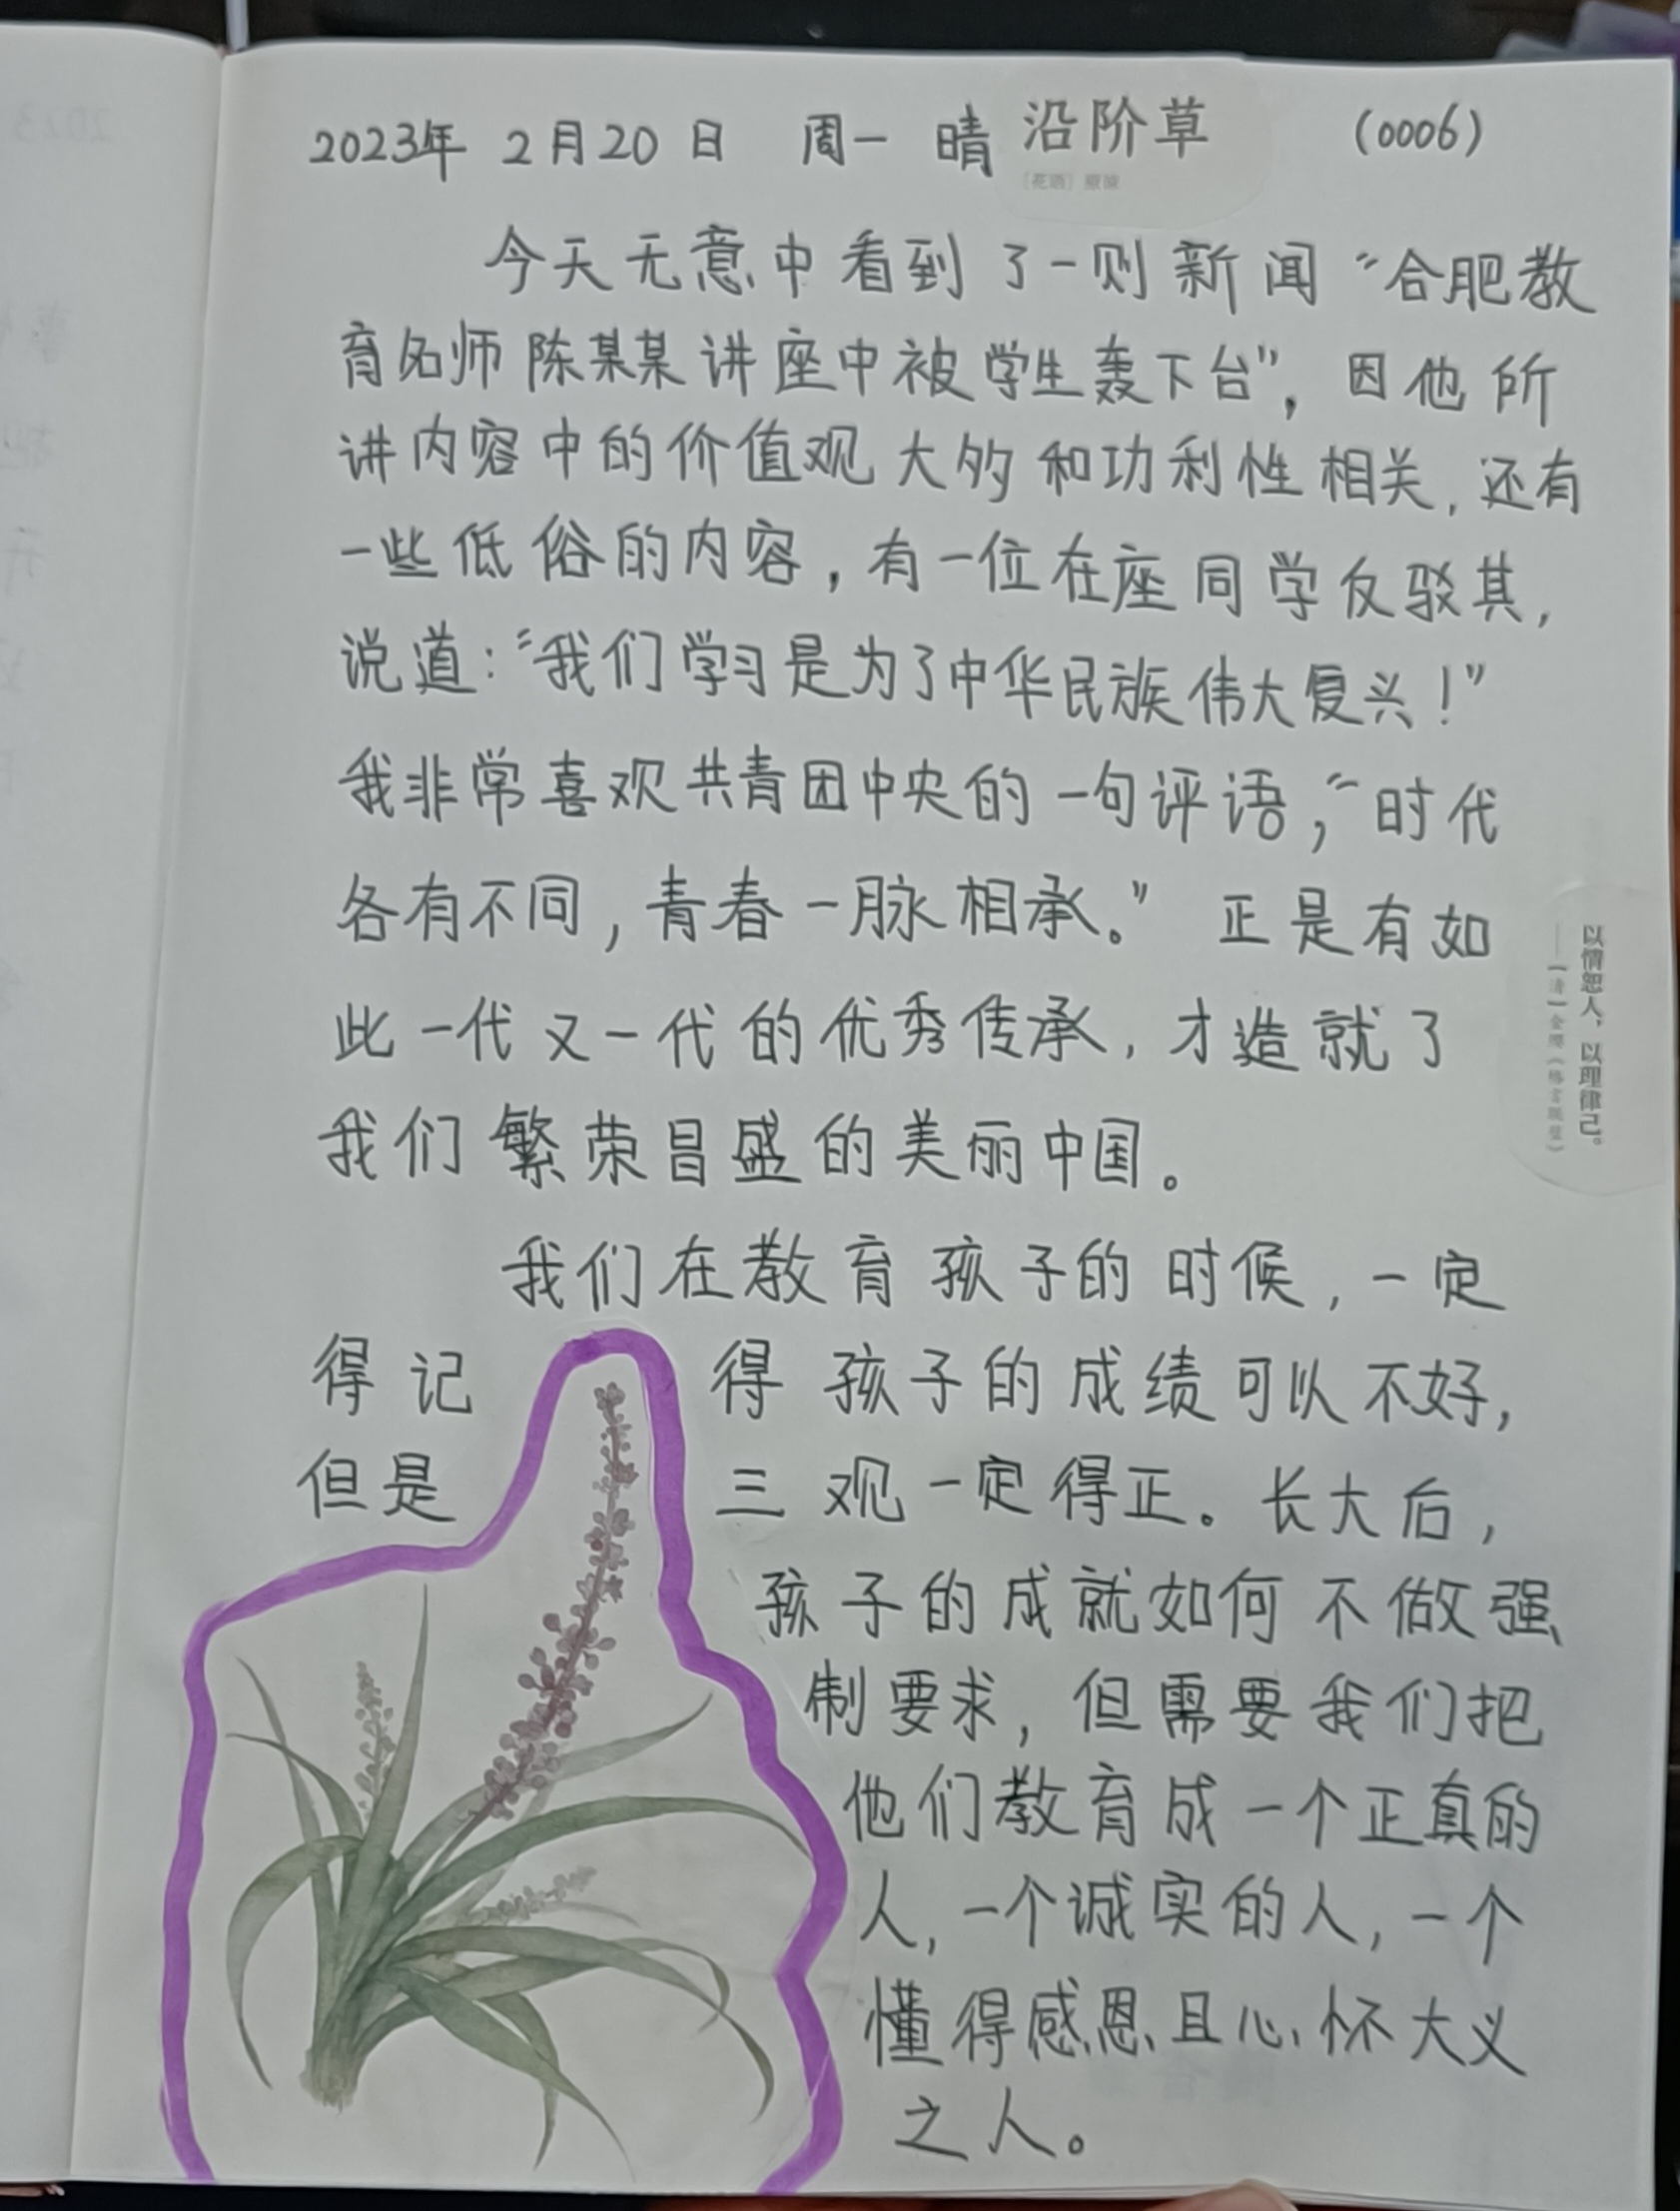 2023年 2月20日 周一 晴 沿阶草 (0006)
今天无意中看到了一则新闻“合肥教
育名师陈某某讲座中被学生轰下台”,因他所
讲内容中的价值观大多和功利性相关,还有
一些低俗的内容,有一位在座同学反驳其,
说道:“我们学习是为了中华民族伟大复兴!”
我非常喜欢共青团中央的一句评语,“时代
各有不同,青春一脉相承。”正是有如
此一代又一代的优秀传承,才造就了
我们繁荣昌盛的美丽中国。
我们在教育孩子的时候,一定
得记得孩子的成绩可以不好,
但是三观一定得正。长大后,
孩子的成就如何不做强
制要求,但需要我们把
他们教育成一个正真的
人,一个诚实的人,一个
懂得感恩、且心怀大义
之人。
以情恕人,以理律己。
——[清]金缨《格言联璧》